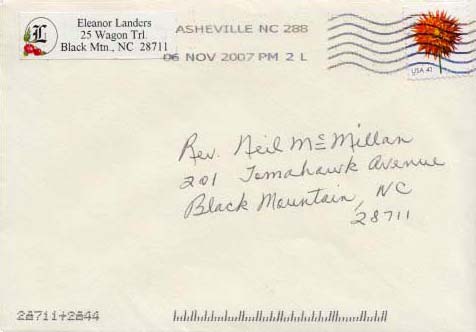 L
Eleanor Landers
25 Wagon Trl.
Black Mtn., NC 28711
ASHEVILLE NC 288
06 NOV 2007 PM 2 L
USA 41
Rev. Neil McMillan
201 Tomahawk Avenue
Black Mountain, NC
28711
28711+2844